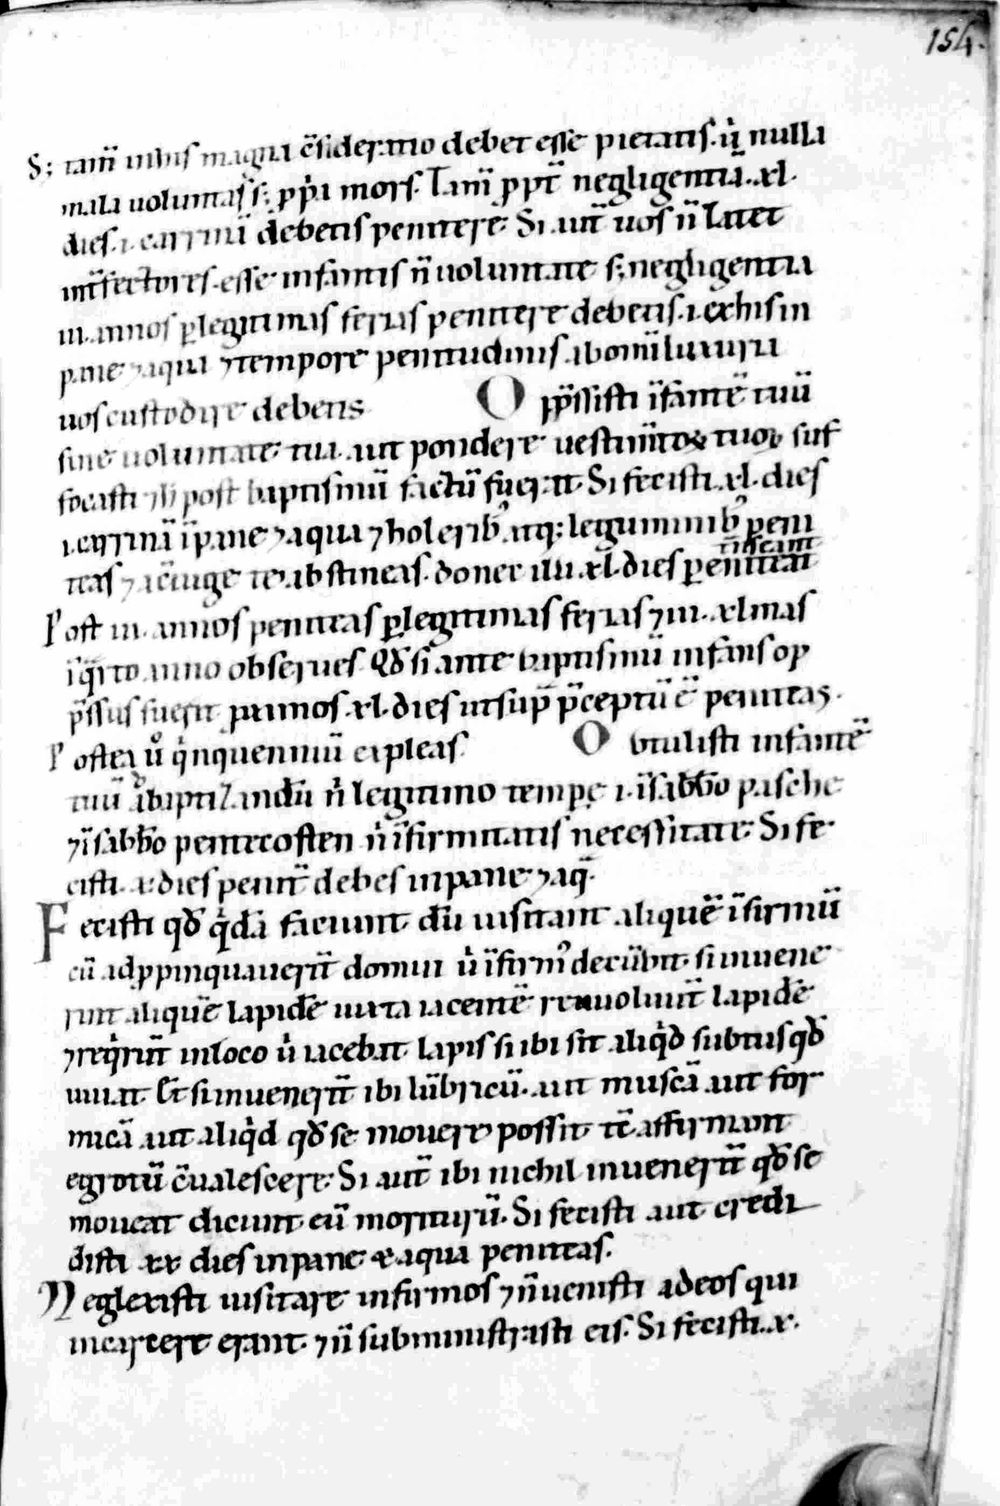 154.
S; tam̄ in his magna c̄sideratio debet esse pietatis. ú nulla
mala uoluntas s; ꝓp̄a mors. Tam̄ ꝓpt̄ negligentiā .xl.
dies .i. carrinā debetis penitere. Si aut̄ uos n̄ latet
int̄fectores esse infantis n̄ uoluntate s; negligentia
.iii. annos ꝑ legitimas ferias penitere debetis .i. ex his in
pane ⁊ aqua ⁊ tempore penitudinis ab om̄i luxuria
uos custodire debetis
Opp̄ssisti īfantē tuū
sine uoluntate tua aut pondere uestim̄toꝝ tuoꝝ suf
focasti ⁊ h̄ post baptismū factū fuerat. Si fecisti .xl. dies
.i. carrinā ī pane ⁊ aqua ⁊ holerib; atq; leguminib; peni
teas ⁊ a c̄iuge te abstineas. donec illi .xl. dies ꝑ eniteat
t̄nseant
Post .iii. annos peniteas ꝑ legitimas ferias ⁊ .iii. xlmas
ī q̄rto anno obserues. Qd̄ si ante baptismū infans op
p̄ssus fuerit ꝓximos .xl. dies ut sup̄ p̄ceptū ē peniteas.
Postea u̇ q̇nquenniū expleas.
Obtulisti infantē
tuū ad baptizandū n̍ legitimo tempe .i. ī sabb̄o pasche
⁊ ī sabb̄o pentecosten n̍ īfirmitatis necessitate. Si fe
cisti .x. dies penit̄ debes in pane ⁊ aq̄.
Fecisti qd̄ q̍dā faciunt dū uisitant aliquē īfirmū
cū adpropinquauerit̄ domui u̍ īfirm᷒ decūbit. si inuene
rint aliquē lapidē iuxta iacentē reuoluunt̄ lapidē
⁊ req̍rūt in loco u̍ iacebat lapis si ibi sit aliq̍d subtus qd̄
uiuat. Et si inuenerīt ibi lūbricū. aut muscā aut for
micā aut aliq̍d qd̄ se mouere possit. tc̄ affirmant
egrotū c̄ualescere. Si aut̄ ibi nichil inuenerīt qd̄ se
moueat dicunt eū moriturū. Si fecisti aut credi
disti .xx. dies in pane & aqua peniteas.
Neglexisti uisitare infirmos ⁊ n̄ uenisti ad eos qui
in carcere erant. ⁊ n̄ subministrasti eis. Si fecisti .x.